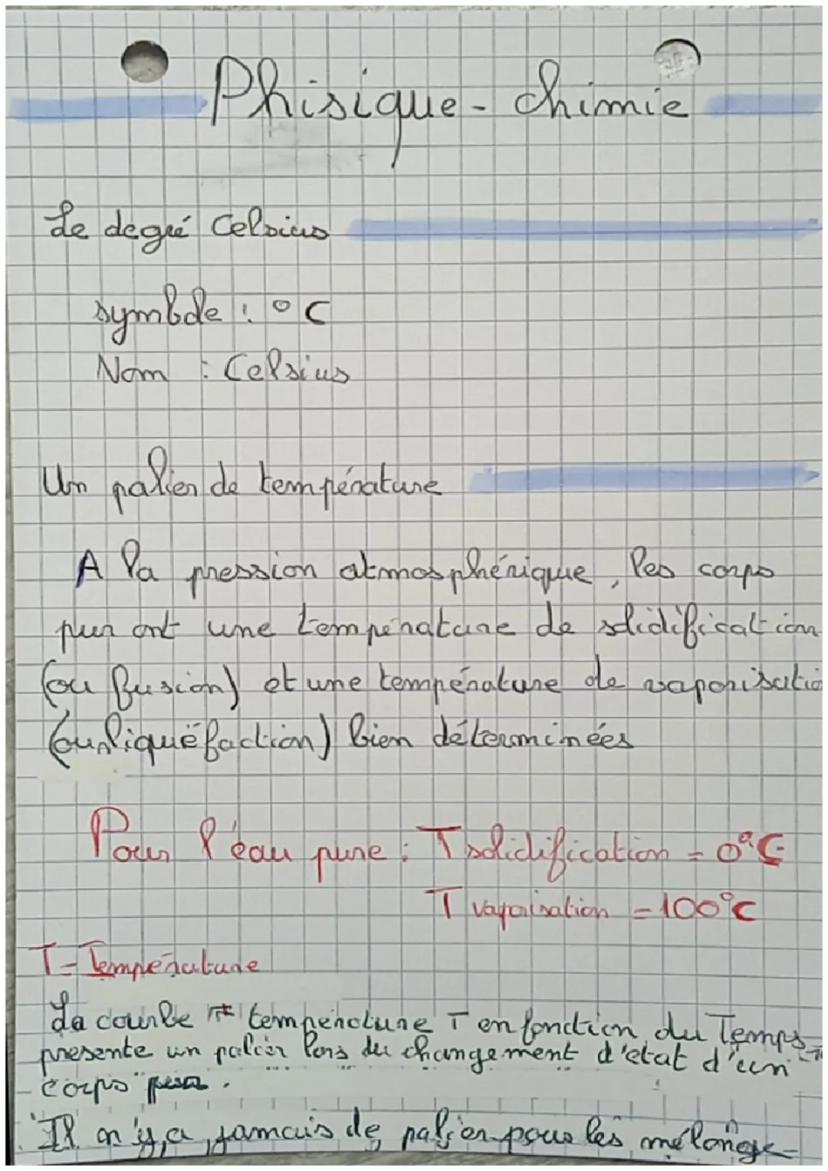 Phisique - chimie
Le degré Celsius
symbole : °C
Nom : Celsius
Un palier de température
A la pression atmosphérique, les corps
pur ont une température de solidification
(ou fusion) et une température de vaporisatio
(ou liquëfaction) bien déterminées
Pour l'eau pure : T solidification = 0°C
T vaporisation = 100°C
T = Température
La courbe température T en fonction du Temps
presente un palier lors du changement d'etat d'un
corps pur.
Il n'y a jamais de palier pour les mélange